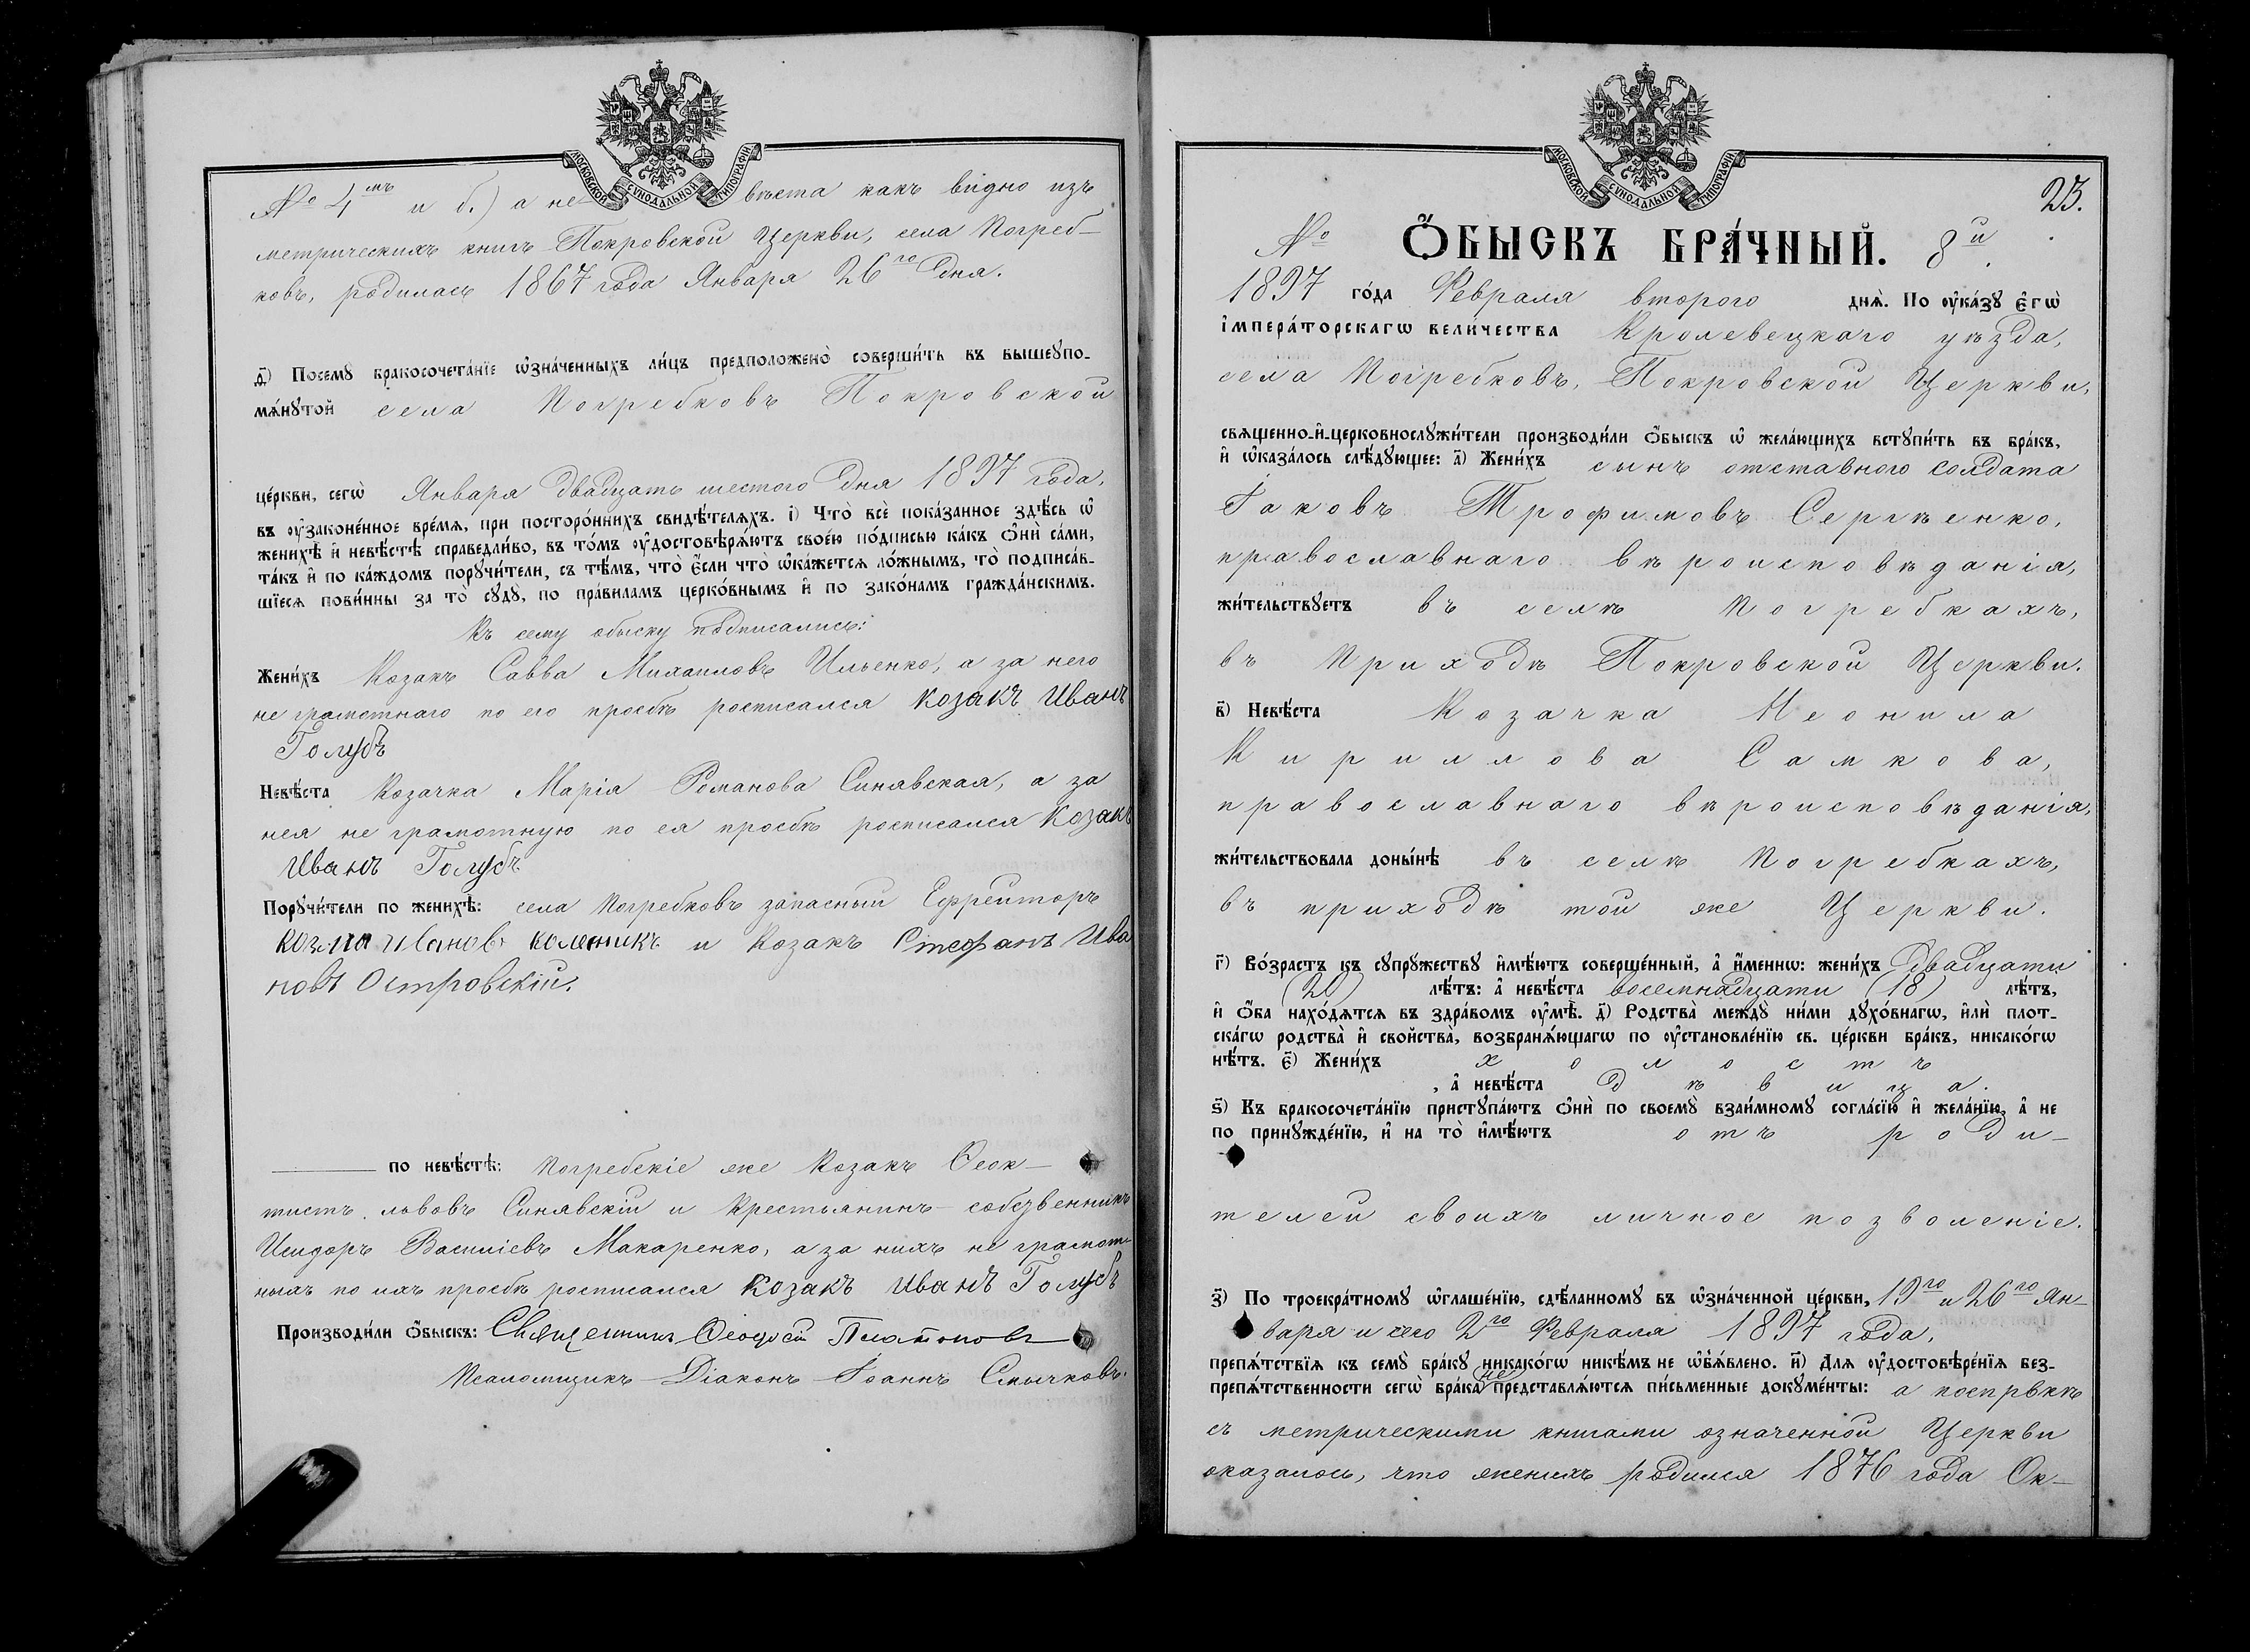 МОСКОВСКОЙ СѴНОДАЛЬНОЙ ТИПОГРАФІИ
№ 4мъ и б.) а не- вѣста какъ видно изъ
метрическихъ книгъ Покровской Церкви, села Погреб-
ковъ, родилась 1867 года Января 26го дня.
д҃і) Посемꙋ бракосочета́нїе ѡ҆зна́ченныхъ ли́цъ предположено̀ соверши́ть въ вышеꙋпо-
мѧ́нꙋтой села Погребковъ Покровской
це́ркви, сегѡ̀ Января двадцать шестого дня 1897 года,
въ ᲂу҆законе́нное вре́мѧ, при посторо́ннихъ свидѣ́телѧхъ. і҃) Что̀ всѐ пока́занное здѣ́сь ѡ҆
женихѣ̀ и҆ невѣ́стѣ справедли́во, въ то́мъ ᲂу҆достовѣрѧ́ютъ свое́ю по́дписью ка́къ ѻ҆нѝ са́ми,
та́къ и҆ по ка́ждомъ порꙋчи́тели, съ тѣ́мъ, что̀ є҆́сли что̀ ѡ҆ка́жетсѧ ло́жнымъ, то̀ подписа́в-
шїесѧ пови́нны за то̀ сꙋдꙋ̀, по пра́виламъ церко́внымъ и҆ по зако́намъ гражда́нскимъ.
Къ сему обыску подписались:
Жени́хъ Козакъ Савва Михаиловъ Ильенко, а за него
не грамотнаго по его просбѣ росписался козакъ Иванъ
Голубъ
Невѣ́ста Козачка Марія Романова Синявская, а за
нея не грамотную по ея просбѣ росписался козакъ
Иванъ Голубъ
Порꙋчи́тели по женихѣ̀: села Погребковъ запасный Ефрейторъ
Козма Ивановъ Коленикъ и Козакъ Стефанъ Ива
новъ Островскій.
по невѣ́стѣ: Погребскіе же Козакъ Ѳеок-
тистъ Львовъ Синявскій и Крестьянинъ-собственникъ
Исидоръ Василіевъ Макаренко, а за нихъ не грамот-
ныхъ по ихъ просбѣ росписался козакъ Иванъ Голубъ
Производи́ли ѻ҆́быскъ: Священникъ Ѳеодосій Платоновъ
Псаломщикъ-Діаконъ Іоаннъ Смычковъ.
МОСКОВСКОЙ СѴНОДАЛЬНОЙ ТИПОГРАФІИ
23.
№ Ѻ҆́БЫСКЪ БРА́ЧНЫЙ. 8й.
1897 го́да Февраля второго днѧ̀. По ᲂу҆ка́зꙋ є҆гѡ̀
і҆мпера́торскагѡ вели́чества Кролевецкаго уѣзда,
села Погребковъ, Покровской Церкви,
свѧще́нно-и҆-церковнослꙋжи́тели производи́ли ѻ҆́быскъ ѡ҆ жела́ющихъ встꙋпи́ть въ бра́къ,
и҆ ѡ҆каза́лось слѣ́дꙋющее: а҃) Жени́хъ сынъ отставного солдата
Іаковъ Трофимовъ Сергѣенко,
православнаго вѣроисповѣданія,
жи́тельствꙋетъ въ селѣ Погребкахъ,
въ Приходѣ Покровской Церкви.
в҃) Невѣ́ста Козачка Неонила
Кириллова Самкова,
православнаго вѣроисповѣданія,
жи́тельствовала доны́нѣ въ селѣ Погребкахъ,
въ приходѣ той же Церкви.
г҃) Во́зрастъ къ сꙋпрꙋ́жествꙋ и҆мѣ́ютъ соверше́нный, а҆ и҆́меннѡ: жени́хъ двадцати
(20) лѣ́тъ: а҆ невѣ́ста восемнадцати (18) лѣ́тъ,
и҆ ѻ҆́ба нахо́дѧтсѧ въ здра́вомъ ᲂу҆мѣ̀. д҃) Родства̀ междꙋ̀ ни́ми дꙋхо́внагѡ, и҆лѝ плот-
ска́гѡ родства̀ и҆ свойства̀, возбранѧ́ющагѡ по ᲂу҆становле́нїю св. це́ркви бра́къ, никако́гѡ
нѣ́тъ. є҃) Жени́хъ холостъ
, а҆ невѣ́ста дѣвица.
ѕ҃) Къ бракосочета́нїю пристꙋпа́ютъ ѻ҆нѝ по своемꙋ̀ взаи́мномꙋ согла́сїю и҆ жела́нїю, а҆ не
по принꙋжде́нїю, и҆ на то̀ и҆мѣ́ютъ отъ роди-
телей своихъ личное позволеніе.
з҃) По троекра́тномꙋ ѡ҆глаше́нїю, сдѣ́ланномꙋ въ ѡ҆зна́ченной це́ркви, 19го и 26го Ян-
варя и сего 2го Февраля 1897 года,
препѧ́тствїѧ къ семꙋ̀ бра́кꙋ никако́гѡ никѣ́мъ не ѡ҆б̾ѧ́влено. и҃) Длѧ ᲂу҆достовѣре́нїѧ без-
препѧ́тственности сегѡ̀ бра́ка не представлѧ́ютсѧ пи́сьменные докꙋме́нты: а поспрвкѣ
съ метрическими книгами означенной Церкви
оказалось, что женихъ родился 1876 года Ок-